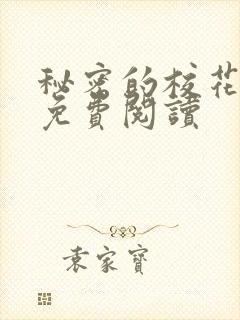 秘密的校花
免費閱讀
袁家寶